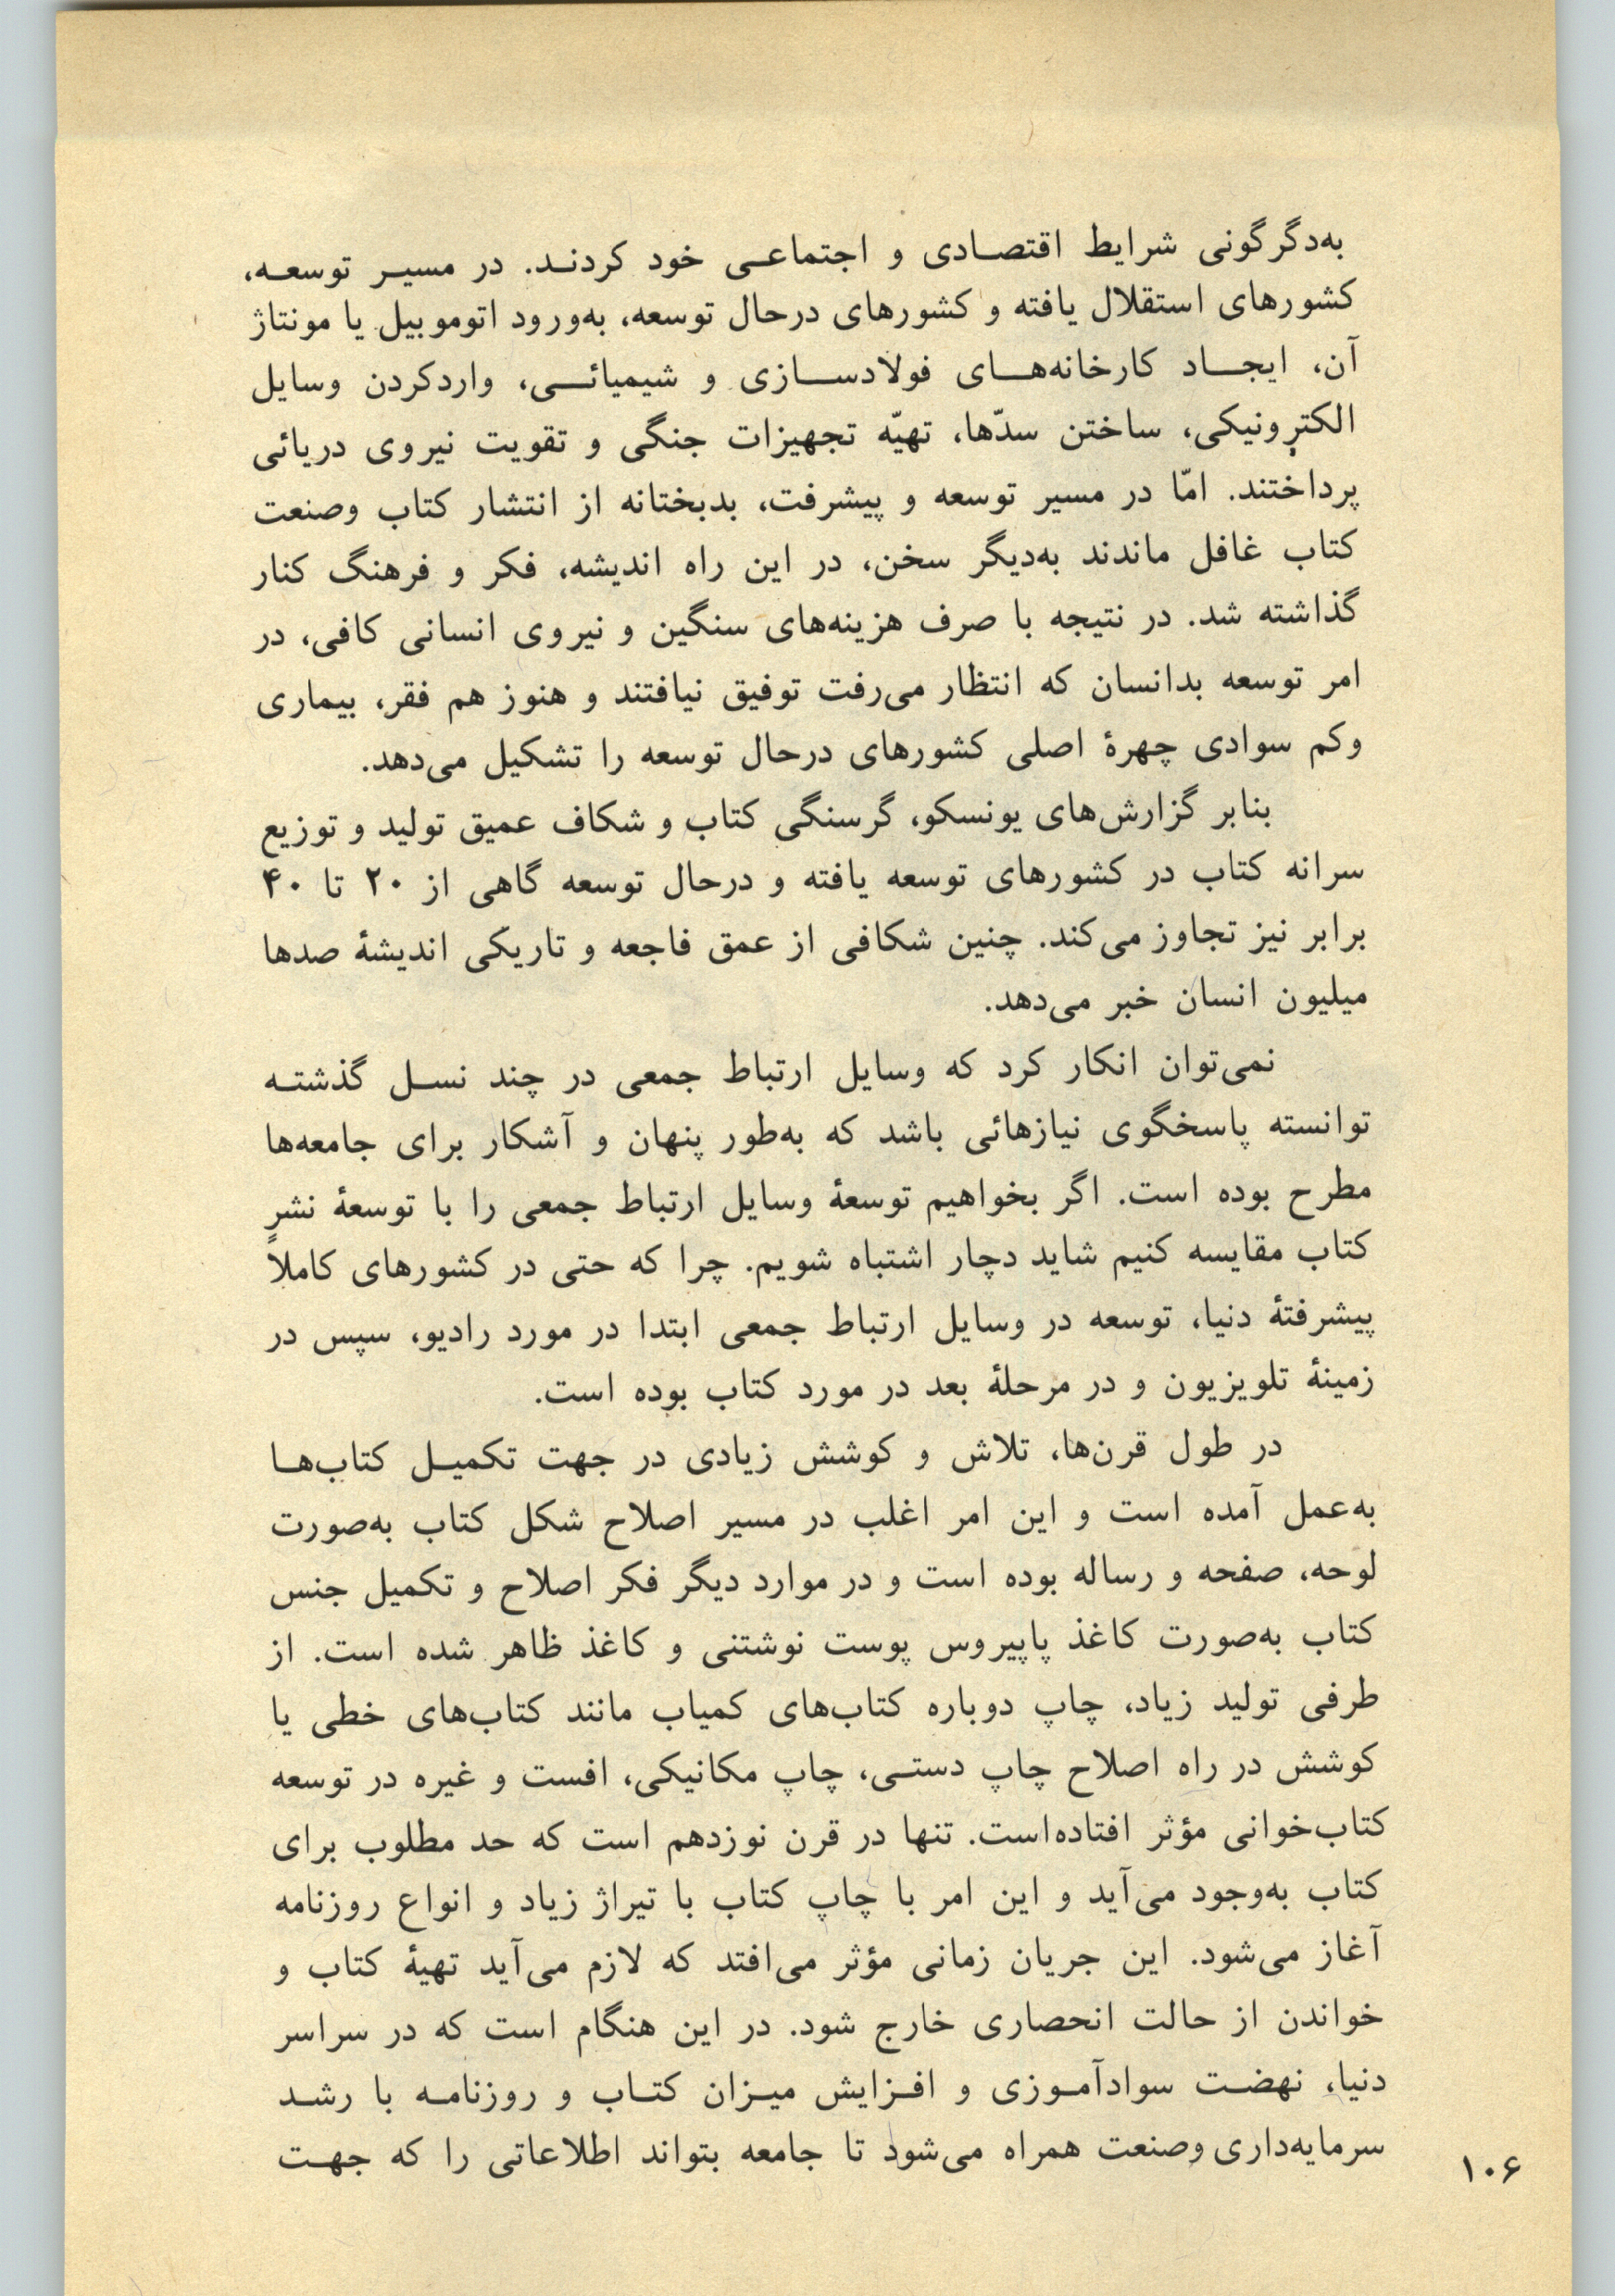 به‌دگرگونی شرایط اقتصادی و اجتماعی خود کردند. در مسیر توسعه،
کشورهای استقلال یافته و کشورهای درحال توسعه، به‌ورود اتوموبیل یا مونتاژ
آن، ایجاد کارخانه‌های فولادسازی و شیمیائی، واردکردن وسایل
الکترونیکی، ساختن سدّها، تهیّه تجهیزات جنگی و تقویت نیروی دریائی
پرداختند. امّا در مسیر توسعه و پیشرفت، بدبختانه از انتشار کتاب وصنعت
کتاب غافل ماندند به‌دیگر سخن، در این راه اندیشه، فکر و فرهنگ کنار
گذاشته شد. در نتیجه با صرف هزینه‌های سنگین و نیروی انسانی کافی، در
امر توسعه بدانسان که انتظار می‌رفت توفیق نیافتند و هنوز هم فقر، بیماری
وکم سوادی چهرهٔ اصلی کشورهای درحال توسعه را تشکیل می‌دهد.
بنابر گزارش‌های یونسکو، گرسنگی کتاب و شکاف عمیق تولید و توزیع
سرانه کتاب در کشورهای توسعه یافته و درحال توسعه گاهی از ۲۰ تا ۴۰
برابر نیز تجاوز می‌کند. چنین شکافی از عمق فاجعه و تاریکی اندیشهٔ صدها
میلیون انسان خبر می‌دهد.
نمی‌توان انکار کرد که وسایل ارتباط جمعی در چند نسل گذشته
توانسته پاسخگوی نیازهائی باشد که به‌طور پنهان و آشکار برای جامعه‌ها
مطرح بوده است. اگر بخواهیم توسعهٔ وسایل ارتباط جمعی را با توسعهٔ نشر
کتاب مقایسه کنیم شاید دچار اشتباه شویم. چرا که حتی در کشورهای کاملاً
پیشرفتهٔ دنیا، توسعه در وسایل ارتباط جمعی ابتدا در مورد رادیو، سپس در
زمینهٔ تلویزیون و در مرحلهٔ بعد در مورد کتاب بوده است.
در طول قرن‌ها، تلاش و کوشش زیادی در جهت تکمیل کتاب‌ها
به‌عمل آمده است و این امر اغلب در مسیر اصلاح شکل کتاب به‌صورت
لوحه، صفحه و رساله بوده است و در موارد دیگر فکر اصلاح و تکمیل جنس
کتاب به‌صورت کاغذ پاپیروس پوست نوشتنی و کاغذ ظاهر شده است. از
طرفی تولید زیاد، چاپ دوباره کتاب‌های کمیاب مانند کتاب‌های خطی یا
کوشش در راه اصلاح چاپ دستی، چاپ مکانیکی، افست و غیره در توسعه
کتاب‌خوانی مؤثر افتاده‌است. تنها در قرن نوزدهم است که حد مطلوب برای
کتاب به‌وجود می‌آید و این امر با چاپ کتاب با تیراژ زیاد و انواع روزنامه
آغاز می‌شود. این جریان زمانی مؤثر می‌افتد که لازم می‌آید تهیهٔ کتاب و
خواندن از حالت انحصاری خارج شود. در این هنگام است که در سراسر
دنیا، نهضت سوادآموزی و افزایش میزان کتاب و روزنامه با رشد
سرمایه‌داری وصنعت همراه می‌شود تا جامعه بتواند اطلاعاتی را که جهت
۱۰۶